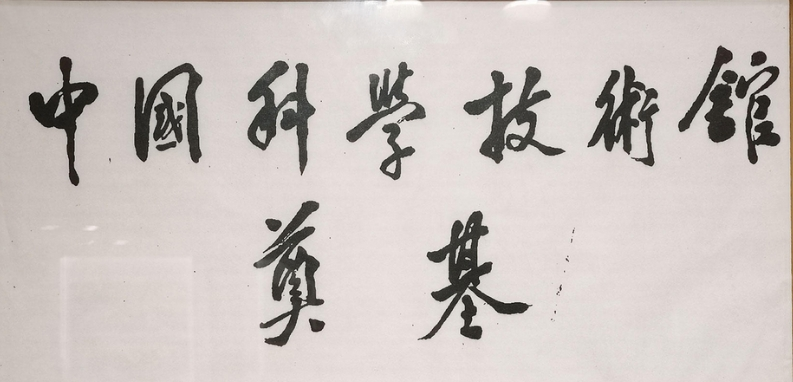 中國科學技術館
奠基